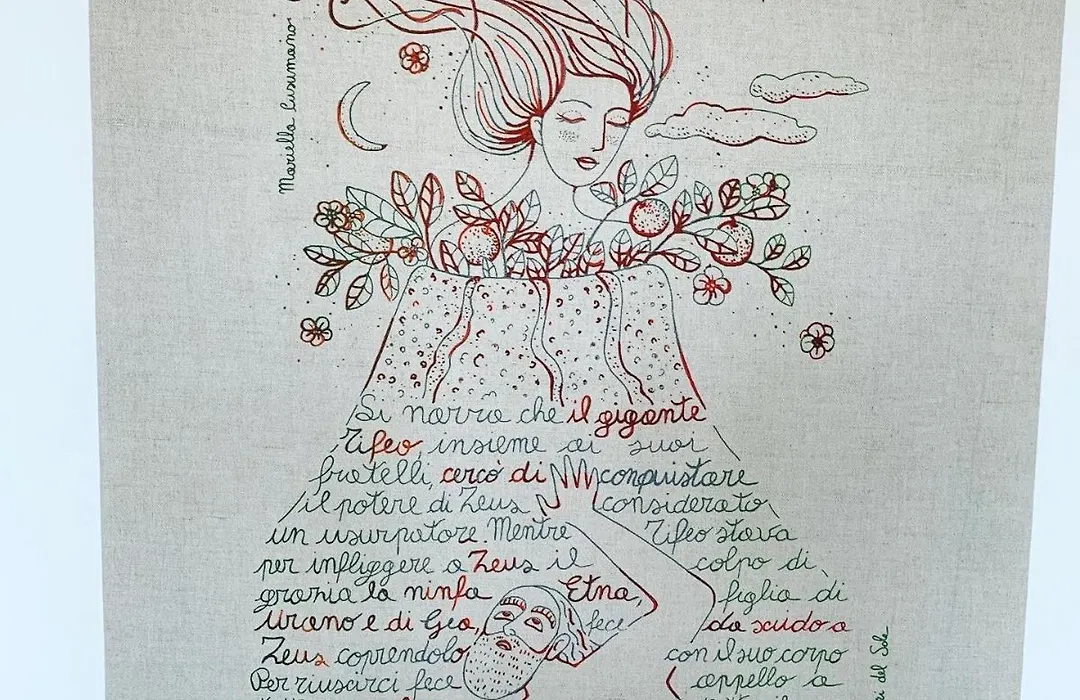 Mariella Cusumano
Si narra che il gigante
Tifeo, insieme ai suoi
fratelli, cercò di conquistare
il potere di Zeus considerato
un usurpatore. Mentre Tifeo stava
per infliggere a Zeus il colpo di
grazia la ninfa Etna, figlia di
Urano e di Gea, fece da scudo a
Zeus coprendolo con il suo corpo
Per riuscirci fece appello a
del Sole